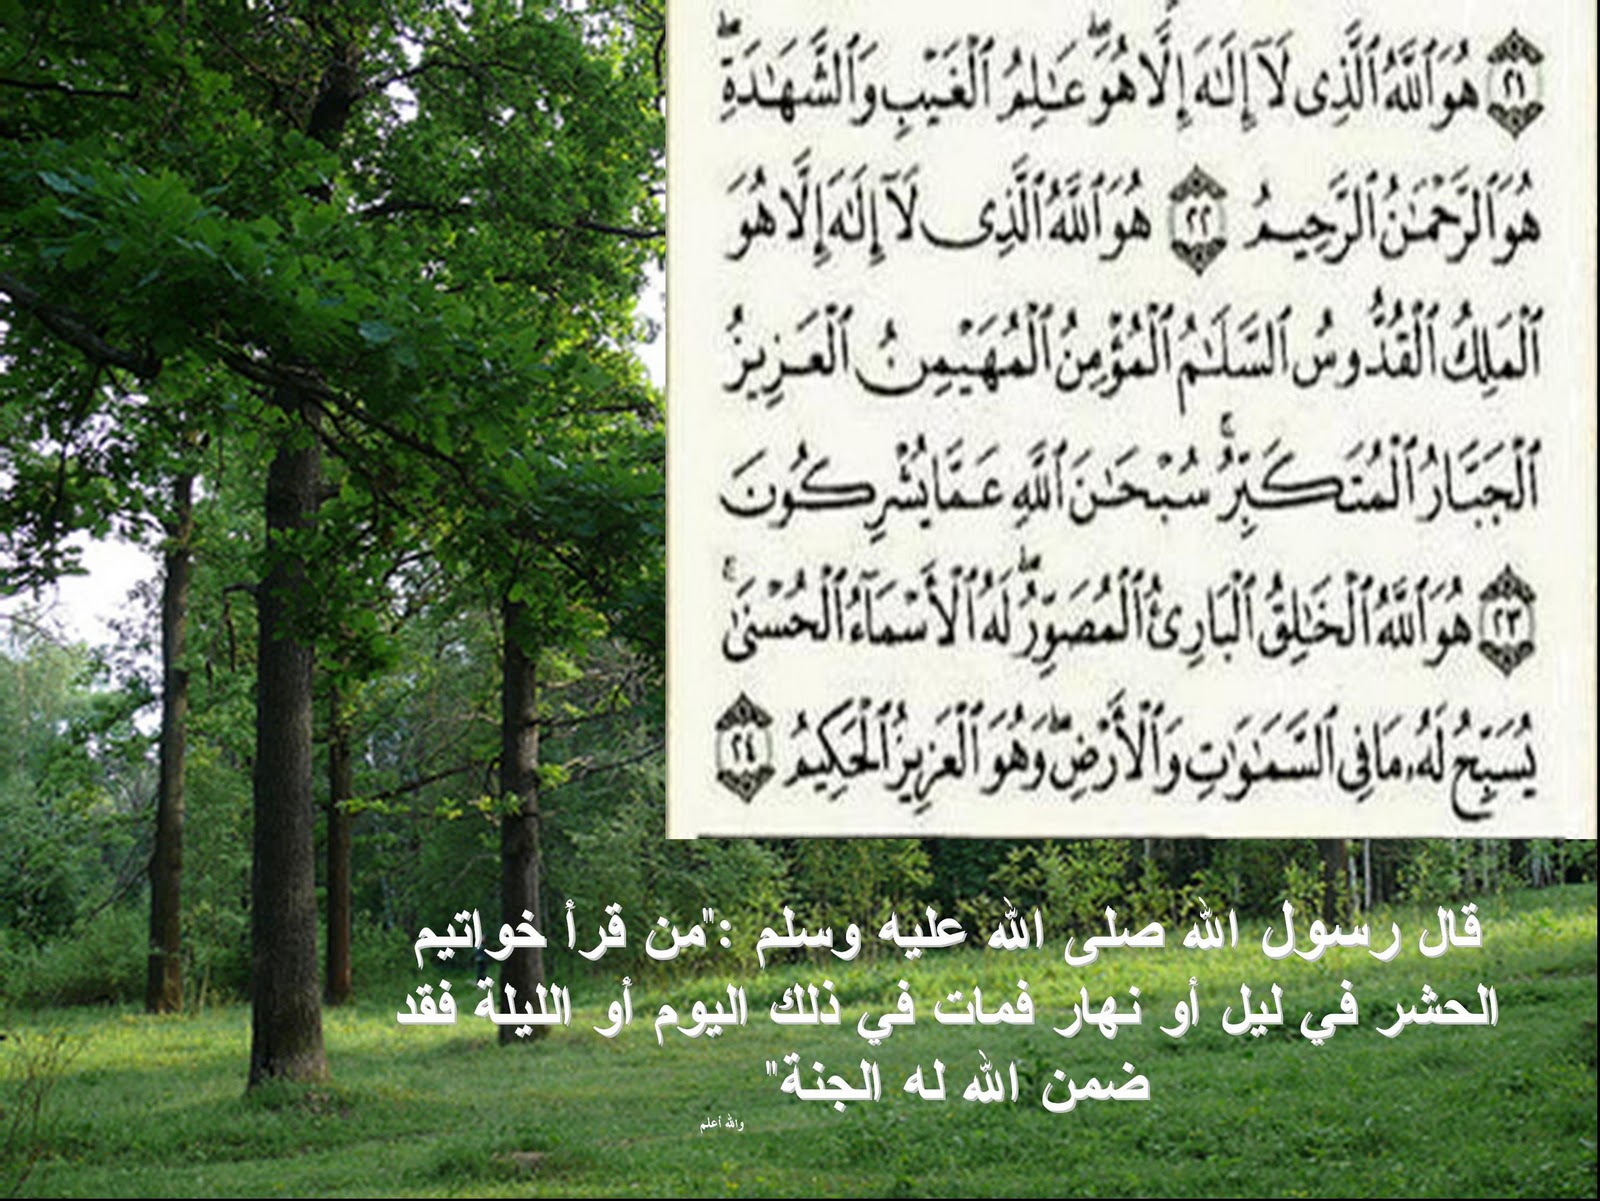 ﴿٢١﴾ هُوَ ٱللَّهُ ٱلَّذِى لَآ إِلَـٰهَ إِلَّا هُوَ ۖ عَـٰلِمُ ٱلْغَيْبِ وَٱلشَّهَـٰدَةِ ۖ
هُوَ ٱلرَّحْمَـٰنُ ٱلرَّحِيمُ ﴿٢٢﴾ هُوَ ٱللَّهُ ٱلَّذِى لَآ إِلَـٰهَ إِلَّا هُوَ
ٱلْمَلِكُ ٱلْقُدُّوسُ ٱلسَّلَـٰمُ ٱلْمُؤْمِنُ ٱلْمُهَيْمِنُ ٱلْعَزِيزُ
ٱلْجَبَّارُ ٱلْمُتَكَبِّرُ ۚ سُبْحَـٰنَ ٱللَّهِ عَمَّا يُشْرِكُونَ
﴿٢٣﴾ هُوَ ٱللَّهُ ٱلْخَـٰلِقُ ٱلْبَارِئُ ٱلْمُصَوِّرُ ۖ لَهُ ٱلْأَسْمَآءُ ٱلْحُسْنَىٰ ۚ
يُسَبِّحُ لَهُۥ مَا فِى ٱلسَّمَـٰوَٰتِ وَٱلْأَرْضِ ۖ وَهُوَ ٱلْعَزِيزُ ٱلْحَكِيمُ ﴿٢٤﴾
قال رسول الله صلى الله عليه وسلم :"من قرأ خواتيم
الحشر في ليل أو نهار فمات في ذلك اليوم أو الليلة فقد
ضمن الله له الجنة"
والله أعلم